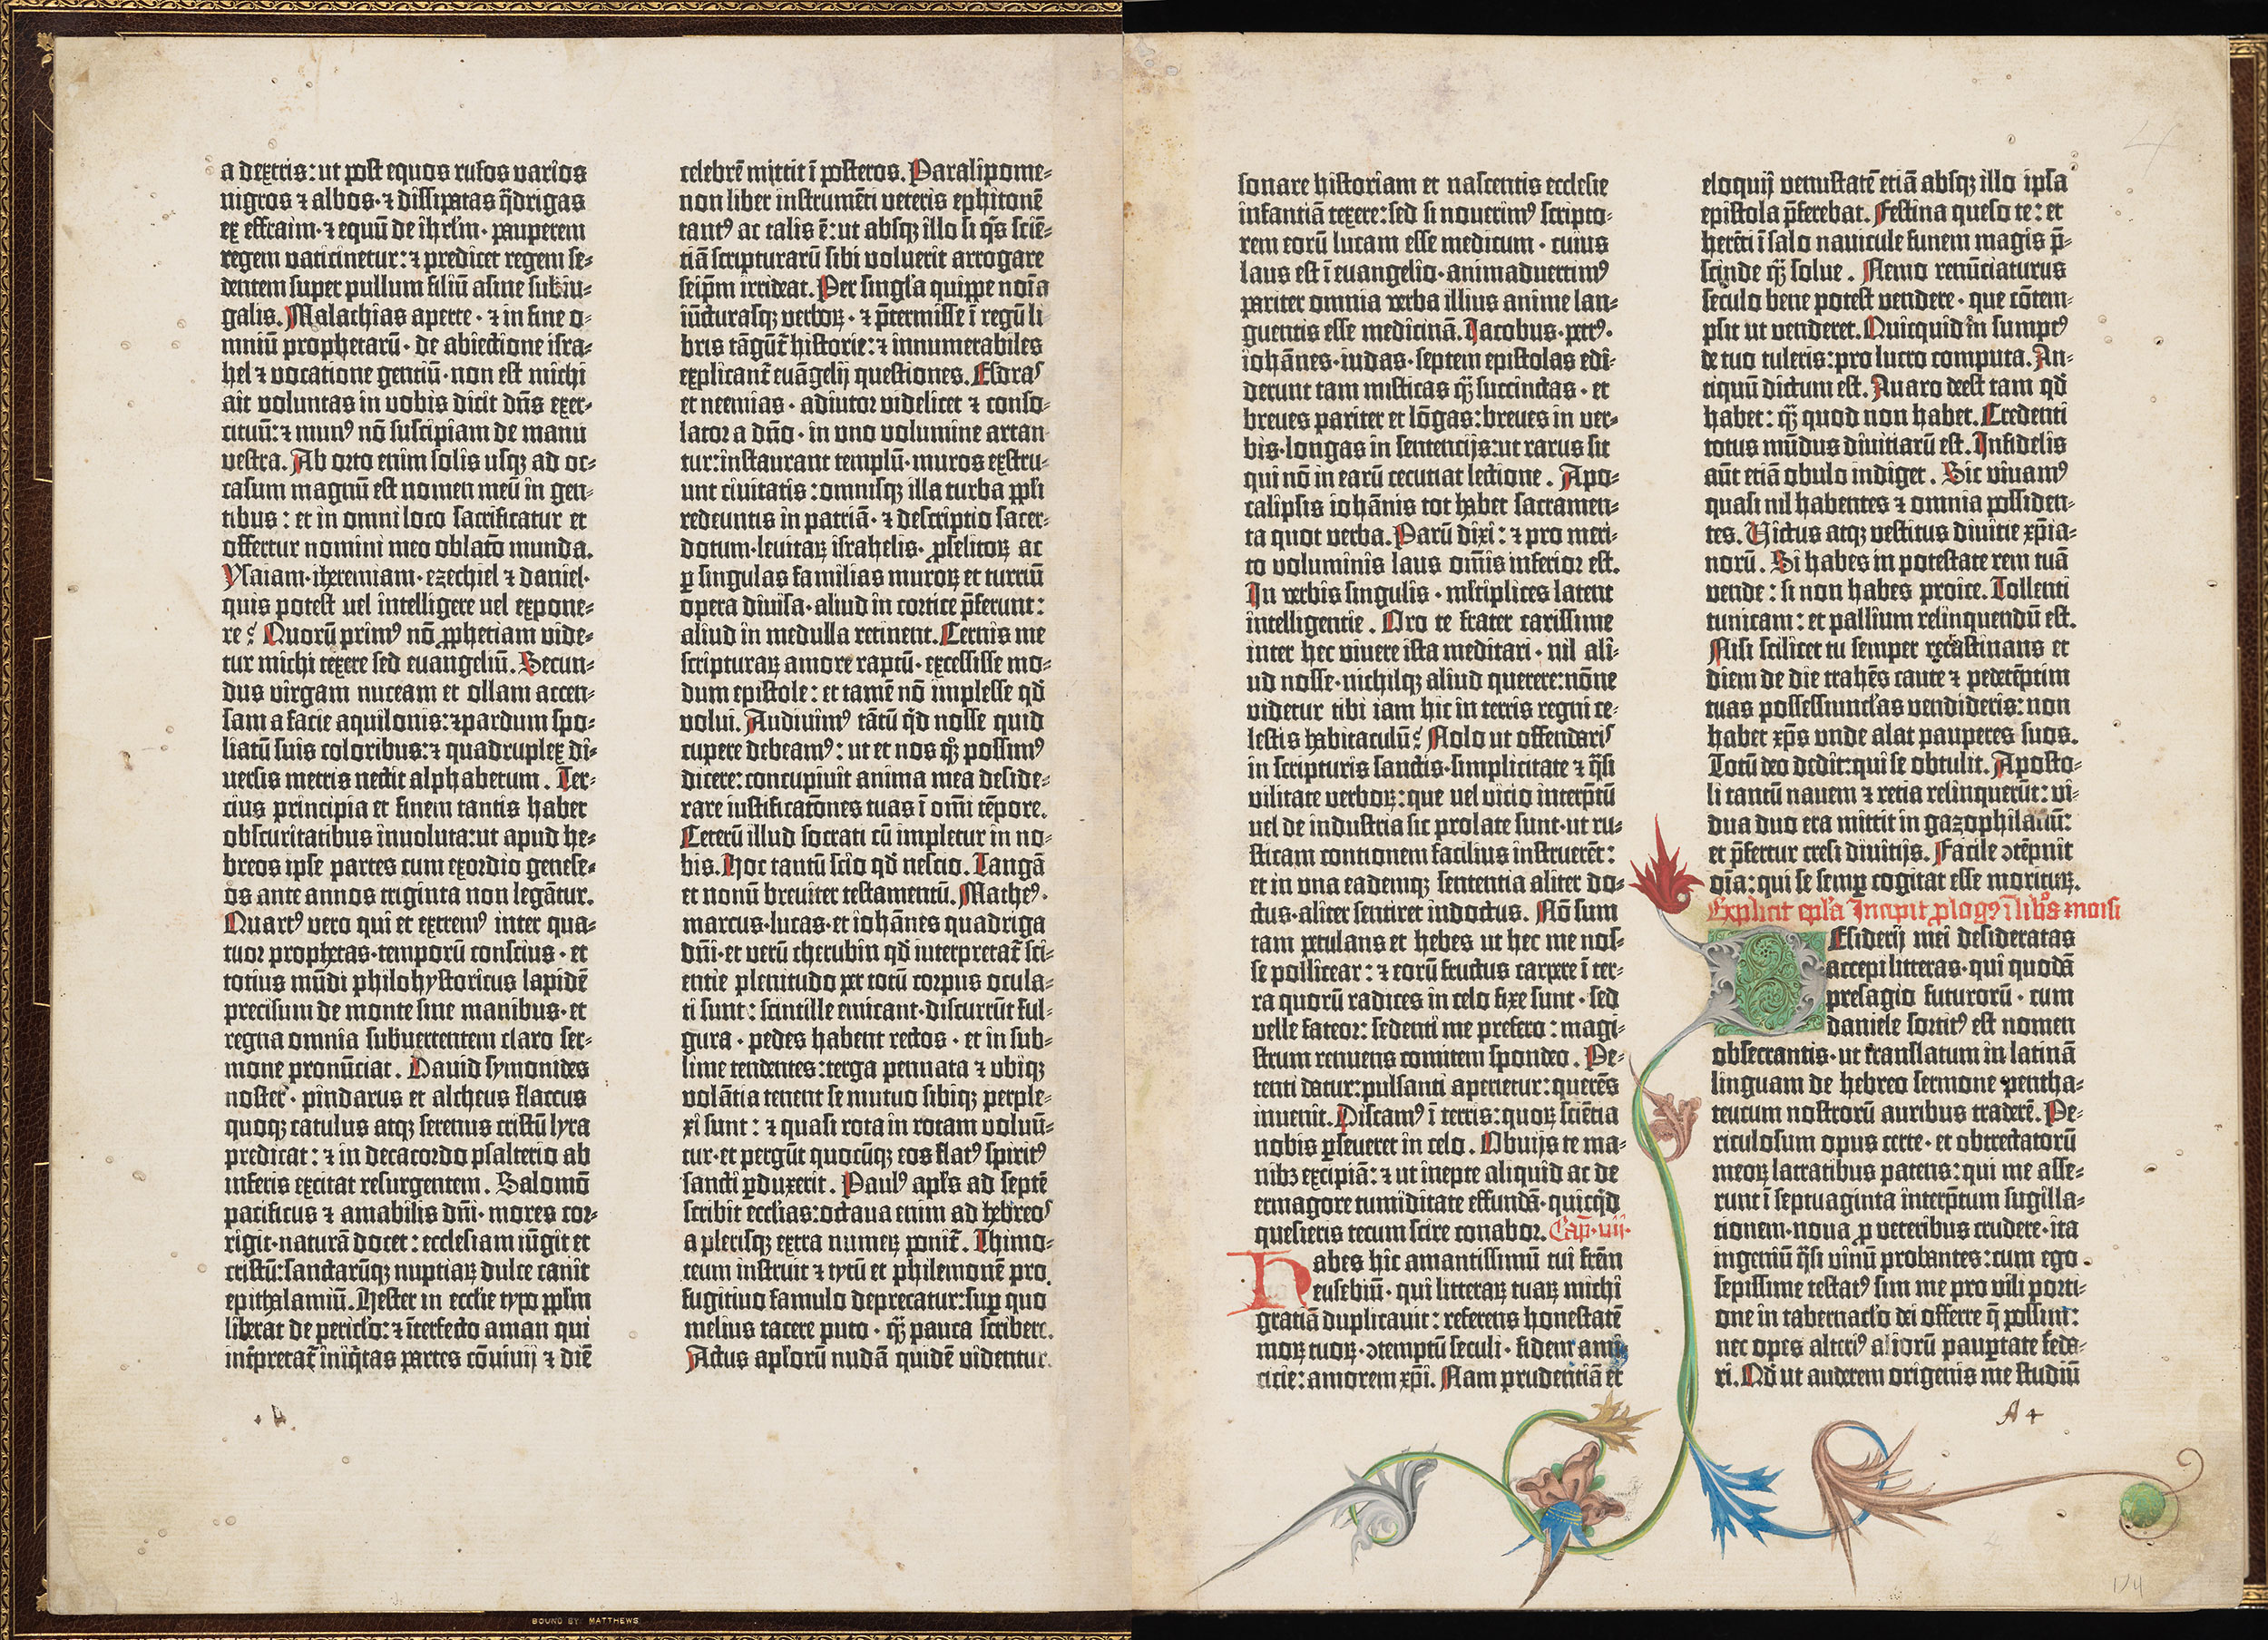 a dextris: ut post equos rufos varios
nigros ⁊ albos· ⁊ dissipatas q̃drigas
ex effraim· ⁊ equũ de ihrłm· pauperem
regem vaticinetur: ⁊ predicet regem se-
dentem super pullum filiũ asine subiu-
galis. Malachias aperte· ⁊ in fine o-
mniũ prophetarũ· de abiectione isra-
hel ⁊ vocatione gentiũ· non est michi
ait voluntas in vobis dicit dñs exer-
cituũ: ⁊ munꝰ nõ suscipiam de manu
vestra. Ab orto enim solis usqꝫ ad oc-
casum magnũ est nomen meũ in gen-
tibus: et in omni loco sacrificatur et
offertur nomini meo oblatõ munda.
Ysaiam· iheremiam· ezechiel ⁊ daniel·
quis potest vel intelligere vel expone-
re? Quorũ primꝰ nõ ꝓphetiam vide-
tur michi texere sed euangeliũ. Secun-
dus virgam nuceam et ollam accen-
sam a facie aquilonis: ⁊ pardum spo-
liatũ suis coloribus: ⁊ quadruplex di-
versis metris nectit alphabetum. Ter-
cius principia et finem tantis habet
obscuritatibus involuta: ut apud he-
breos ipse partes cum exordio genese-
os ante annos triginta non legãtur.
Quartꝰ vero qui et extremꝰ inter qua-
tuor prophetas· temporũ conscius· et
totius mũdi philohystoricus lapidẽ
precisum de monte sine manibus· et
regna omnia subvertentem claro ser-
mone pronũciat. David symonides
noster· pindarus et alcheus flaccus
quoqꝫ catulus atqꝫ serenus cristũ lyra
predicat: ⁊ in decacordo psalterio ab
inferis excitat resurgentem. Salomõ
pacificus ⁊ amabilis dñi· mores cor-
rigit· naturã docet: ecclesiam iũgit et
cristũ: sanctarũqꝫ nuptiaꝝ dulce canit
epithalamiũ. Hester in ecclie typo ppłm
liberat de pericło: ⁊ ĩterfecto aman qui
int̃pretat̃ iniq̃tas partes cõvivij ⁊ diẽ
celebrẽ mittit ĩ posteros. Paralipome-
non liber instrumẽti veteris ephitomẽ
tantꝰ ac talis ẽ: ut absqꝫ illo si q̃s sciẽ-
tiã scripturarũ sibi voluerit arrogare
seip̃m irrideat. Per singl'a quippe noĩa
iũcturasqꝫ verboꝝ· ⁊ p̃termisse ĩ regũ li
bris tãgũt̃ historie: ⁊ innumerabiles
explicant̃ euãgelij questiones. Esdras
et neemias· adiutor videlicet ⁊ conso-
lator a dño· in vno volumine artan
tur: instaurant templũ· muros exstru-
unt civitatis: omnisqꝫ illa turba ppłi
redeuntis in patriã· ⁊ descriptio sacer-
dotum· levitaꝝ israhelis· ꝓselitoꝝ ac
ꝑ singulas familias muroꝝ et turriũ
opera divisa· aliud in cortice p̃ferunt:
aliud in medulla retinent. Cernis me
scripturaꝝ amore raptũ· excessisse mo-
dum epistole: et tamẽ nõ implesse qđ
volui. Audivimꝰ tãtũ q̃d nosse quid
cupere debeamꝰ: ut et nos qꝫ possimꝰ
dicere: concupivit anima mea deside-
rare iustificatõnes tuas ĩ om̃i tẽpore.
Ceterũ illud socrati cũ impletur in no-
bis. Hoc tantũ scio qđ nescio. Tangã
et novũ breviter testamentũ. Matheꝰ·
marcus· lucas· et iohãnes quadriga
dñi· et verũ cherubin qđ interpretat̃ sci-
entie plenitudo per totũ corpus ocula-
ti sunt: scintille emicant· discurrũt ful-
gura· pedes habent rectos· et in sub-
lime tendentes: terga pennata ⁊ ubiqꝫ
volãtia tenent se mutuo sibiqꝫ perple-
xi sunt: ⁊ quasi rota in rotam volvũ-
tur· et pergũt quocũqꝫ eos flatꝰ spiritꝰ
sancti ꝑduxerit. Paulꝰ apłs ad septẽ
scribit eccłias: octava enim ad hebreos
a plerisqꝫ extra numeꝝ ponit̃. Thimo-
teum instruit ⁊ tytũ et philemonẽ pro
fugitivo famulo deprecatur: sup̱ quo
melius tacere puto· q̃ꝫ pauca scribere.
Actus apłorũ nudã quidẽ videntur
sonare historiam et nascentis ecclesie
infantiã texere: sed si noverimꝰ scripto-
rem eorũ lucam esse medicum· cuius
laus est ĩ euangelio· animadvertimꝰ
pariter omnia verba illius anime lan-
guentis esse medicinã. Jacobus· petrꝰ·
iohãnes· iudas· septem epistolas edi-
derunt tam misticas q̃ꝫ succinctas· et
breves pariter et lõgas: breves in ver-
bis· longas in sentencijs: ut rarus sit
qui nõ in earũ cecutiat lectione. Apo-
calipsis iohãnis tot habet sacramen-
ta quot verba. Parũ dixi: ⁊ pro meri-
to voluminis laus om̃is inferior est.
In verbis singulis· mltiplices latent
intelligentie. Oro te frater carissime
inter hec vivere ista meditari· nil ali-
ud nosse· nichilqꝫ aliud querere: nõne
videtur tibi iam hic in terris regni ce-
lestis habitaculũ? Nolo ut offendaris
in scripturis sanctis· simplicitate ⁊ q̃si
vilitate verboꝝ: que vel vicio interp̃tũ
vel de industria sic prolate sunt· ut ru-
sticam contionem facilius instruerẽt:
et in una eademqꝫ sententia aliter do-
ctus· aliter sentiret indoctus. Nõ sum
tam petulans et hebes ut hec me nos-
se pollicear: ⁊ eorũ fructus carpere ĩ ter-
ra quorũ radices in celo fixe sunt· sed
velle fateor: sedenti me prefero: magi-
strum renuens comitem spondeo. Pe-
tenti datur: pulsanti aperietur: querẽs
invenit. Discamꝰ ĩ terris: quoꝝ sciẽtia
nobis ꝑseveret in celo. Obvijs te ma-
nibꝫ excipiã: ⁊ ut inepte aliquid ac de
ermagore tumiditate effundã· quicq̃d
quesieris tecum scire conabor. Cap̃· viij·
Habes hic amantissimũ tui fr̃em
eusebiũ· qui litteraꝝ tuaꝝ michi
gratiã duplicavit: referens honestatẽ
moꝝ tuoꝝ· ↄtemptũ seculi· fidem ami-
cicie: amorem xp̃i. Nam prudentiã et
eloquij venustatẽ etiã absqꝫ illo ipsa
epistola p̃ferebat. Festina queso te: et
herẽti ĩ salo navicule funem magis p̃-
scinde q̃ꝫ solve. Nemo renũciaturus
seculo bene potest vendere· que cõtem-
psit ut venderet. Quicquid in sumptꝰ
de tuo tuleris: pro lucro computa. An-
tiquũ dictum est. Avaro deest tam qđ
habet: q̃ꝫ quod non habet. Credenti
totus mũdus divitiarũ est. Infidelis
aũt etiã obulo indiget. Sic vivamꝰ
quasi nil habentes ⁊ omnia possiden-
tes. Victus atqꝫ vestitus divitie xp̃ia-
norũ. Si habes in potestate rem tuã
vende: si non habes proice. Tollenti
tunicam: et pallium relinquendũ est.
Nisi scilicet tu semper recrastinans et
diem de die trahẽs caute ⁊ pedetẽptim
tuas possessiuncłas vendideris: non
habet xp̃s unde alat pauperes suos.
Totũ deo dedit: qui se obtulit. Aposto-
li tantũ navem ⁊ retia relinquerũt: vi-
dua duo era mittit in gazophilaciũ:
et p̃fertur cresi divitijs. Facile ↄtẽpnit
oĩa: qui se semꝑ cogitat esse moriturꝝ.
Explicit epl'a Incipit ꝓlogꝰ ĩ libꝰs moisi
Desiderij mei desideratas
accepi litteras· qui quodã
presagio futurorũ· cum
daniele sortitꝰ est nomen
obsecrantis· ut translatum in latinã
linguam de hebreo sermone pentha-
teucum nostrorũ auribus traderẽ. Pe-
riculosum opus certe· et obtrectatorũ
meoꝝ latratibus patens: qui me asse-
runt ĩ septuaginta interp̃tum sugilla-
tionem· nova ꝑ veteribus cudere· ita
ingeniũ q̃si vinũ probantes: cum ego
sepissime testatꝰ sim me pro vili porti-
one in tabernacło dei offerre q̃ possim:
nec opes alteriꝰ aliorũ paup̱tate feda-
ri. Qđ ut auderem origenis me studiũ
A 4
BOUND BY MATTHEWS